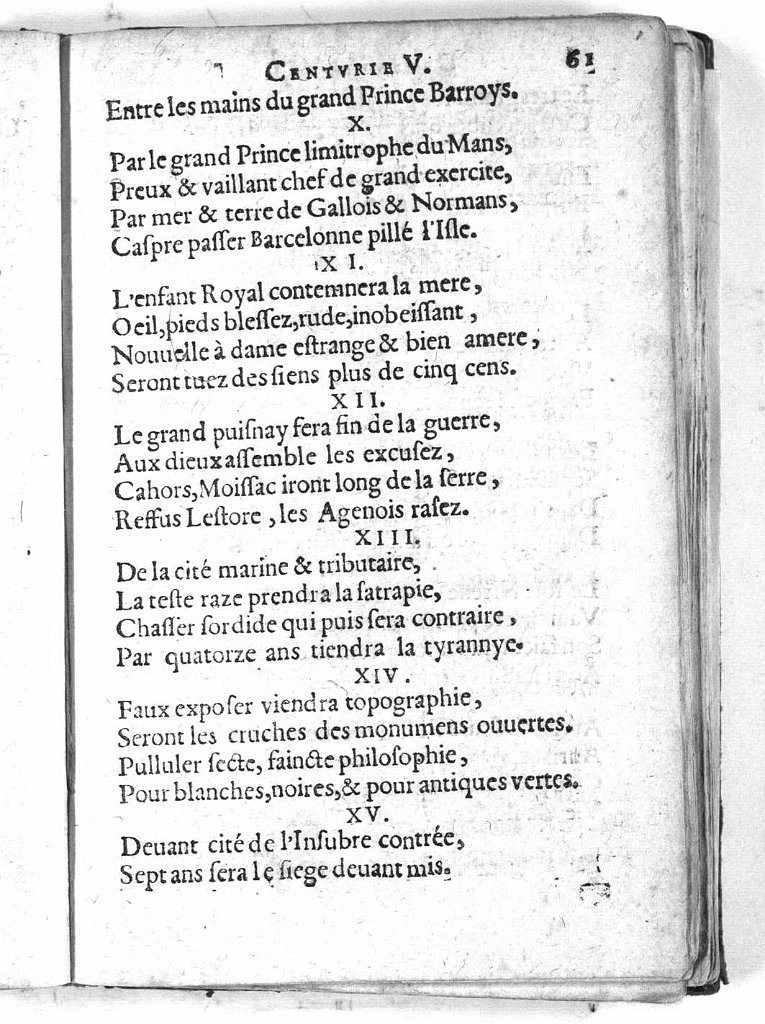 CENTVRIE V. 61
Entre les mains du grand Prince Barroys.
X.
Par le grand Prince limitrophe du Mans,
Preux & vaillant chef de grand exercite,
Par mer & terre de Gallois & Normans,
Caſpre paſſer Barcelonne pillé l'Iſle.
XI.
L'enfant Royal contemnera la mere,
Oeil, pieds bleſſez, rude, inobeiſſant,
Nouuelle à dame eſtrange & bien amere,
Seront tuez des ſiens plus de cinq cens.
XII.
Le grand puiſnay fera fin de la guerre,
Aux dieux aſſemble les excuſez,
Cahors, Moiſſac iront long de la ſerre,
Reffus Leſtore, les Agenois raſez.
XIII.
De la cité marine & tributaire,
La teſte raze prendra la ſatrapie,
Chaſſer ſordide qui puis ſera contraire,
Par quatorze ans tiendra la tyrannye.
XIV.
Faux expoſer viendra topographie,
Seront les cruches des monumens ouuertes.
Pulluler ſecte, faincte philoſophie,
Pour blanches, noires, & pour antiques vertes.
XV.
Deuant cité de l'Inſubre contrée,
Sept ans ſera le ſiege deuant mis.